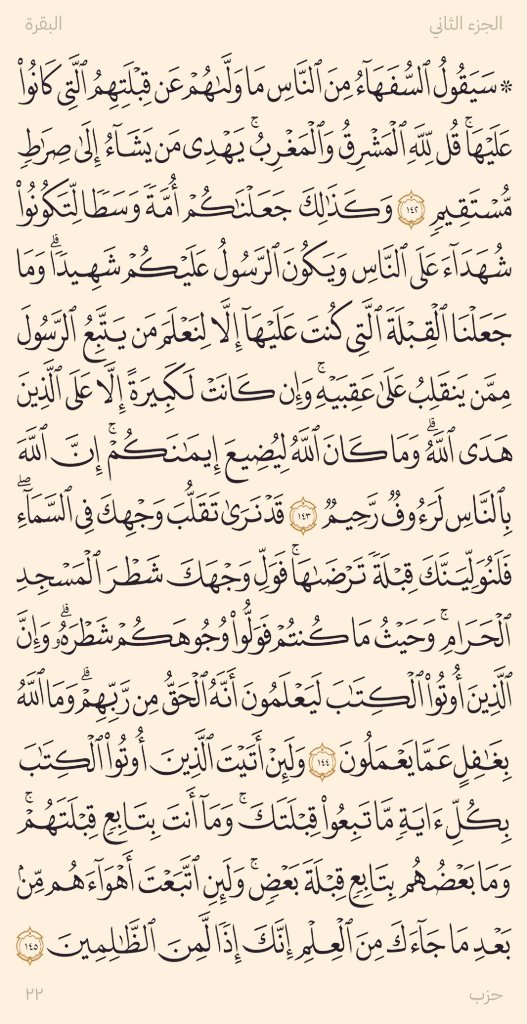 الجزء الثاني
البقرة
۞ سَيَقُولُ ٱلسُّفَهَآءُ مِنَ ٱلنَّاسِ مَا وَلَّىٰهُمْ عَن قِبْلَتِهِمُ ٱلَّتِى كَانُوا۟
عَلَيْهَا ۚ قُل لِّلَّهِ ٱلْمَشْرِقُ وَٱلْمَغْرِبُ ۚ يَهْدِى مَن يَشَآءُ إِلَىٰ صِرَٰطٍ
مُّسْتَقِيمٍ ١٤٢ وَكَذَٰلِكَ جَعَلْنَٰكُمْ أُمَّةً وَسَطًا لِّتَكُونُوا۟
شُهَدَآءَ عَلَى ٱلنَّاسِ وَيَكُونَ ٱلرَّسُولُ عَلَيْكُمْ شَهِيدًا ۗ وَمَا
جَعَلْنَا ٱلْقِبْلَةَ ٱلَّتِى كُنتَ عَلَيْهَآ إِلَّا لِنَعْلَمَ مَن يَتَّبِعُ ٱلرَّسُولَ
مِمَّن يَنقَلِبُ عَلَىٰ عَقِبَيْهِ ۚ وَإِن كَانَتْ لَكَبِيرَةً إِلَّا عَلَى ٱلَّذِينَ
هَدَى ٱللَّهُ ۗ وَمَا كَانَ ٱللَّهُ لِيُضِيعَ إِيمَٰنَكُمْ ۚ إِنَّ ٱللَّهَ
بِٱلنَّاسِ لَرَءُوفٌ رَّحِيمٌ ١٤٣ قَدْ نَرَىٰ تَقَلُّبَ وَجْهِكَ فِى ٱلسَّمَآءِ ۖ
فَلَنُوَلِّيَنَّكَ قِبْلَةً تَرْضَىٰهَا ۚ فَوَلِّ وَجْهَكَ شَطْرَ ٱلْمَسْجِدِ
ٱلْحَرَامِ ۚ وَحَيْثُ مَا كُنتُمْ فَوَلُّوا۟ وُجُوهَكُمْ شَطْرَهُۥ ۗ وَإِنَّ
ٱلَّذِينَ أُوتُوا۟ ٱلْكِتَٰبَ لَيَعْلَمُونَ أَنَّهُ ٱلْحَقُّ مِن رَّبِّهِمْ ۗ وَمَا ٱللَّهُ
بِغَٰفِلٍ عَمَّا يَعْمَلُونَ ١٤٤ وَلَئِنْ أَتَيْتَ ٱلَّذِينَ أُوتُوا۟ ٱلْكِتَٰبَ
بِكُلِّ ءَايَةٍ مَّا تَبِعُوا۟ قِبْلَتَكَ ۚ وَمَآ أَنتَ بِتَابِعٍ قِبْلَتَهُمْ ۚ
وَمَا بَعْضُهُم بِتَابِعٍ قِبْلَةَ بَعْضٍ ۚ وَلَئِنِ ٱتَّبَعْتَ أَهْوَآءَهُم مِّنۢ
بَعْدِ مَا جَآءَكَ مِنَ ٱلْعِلْمِ إِنَّكَ إِذًا لَّمِنَ ٱلظَّٰلِمِينَ ١٤٥
حزب
٢٢